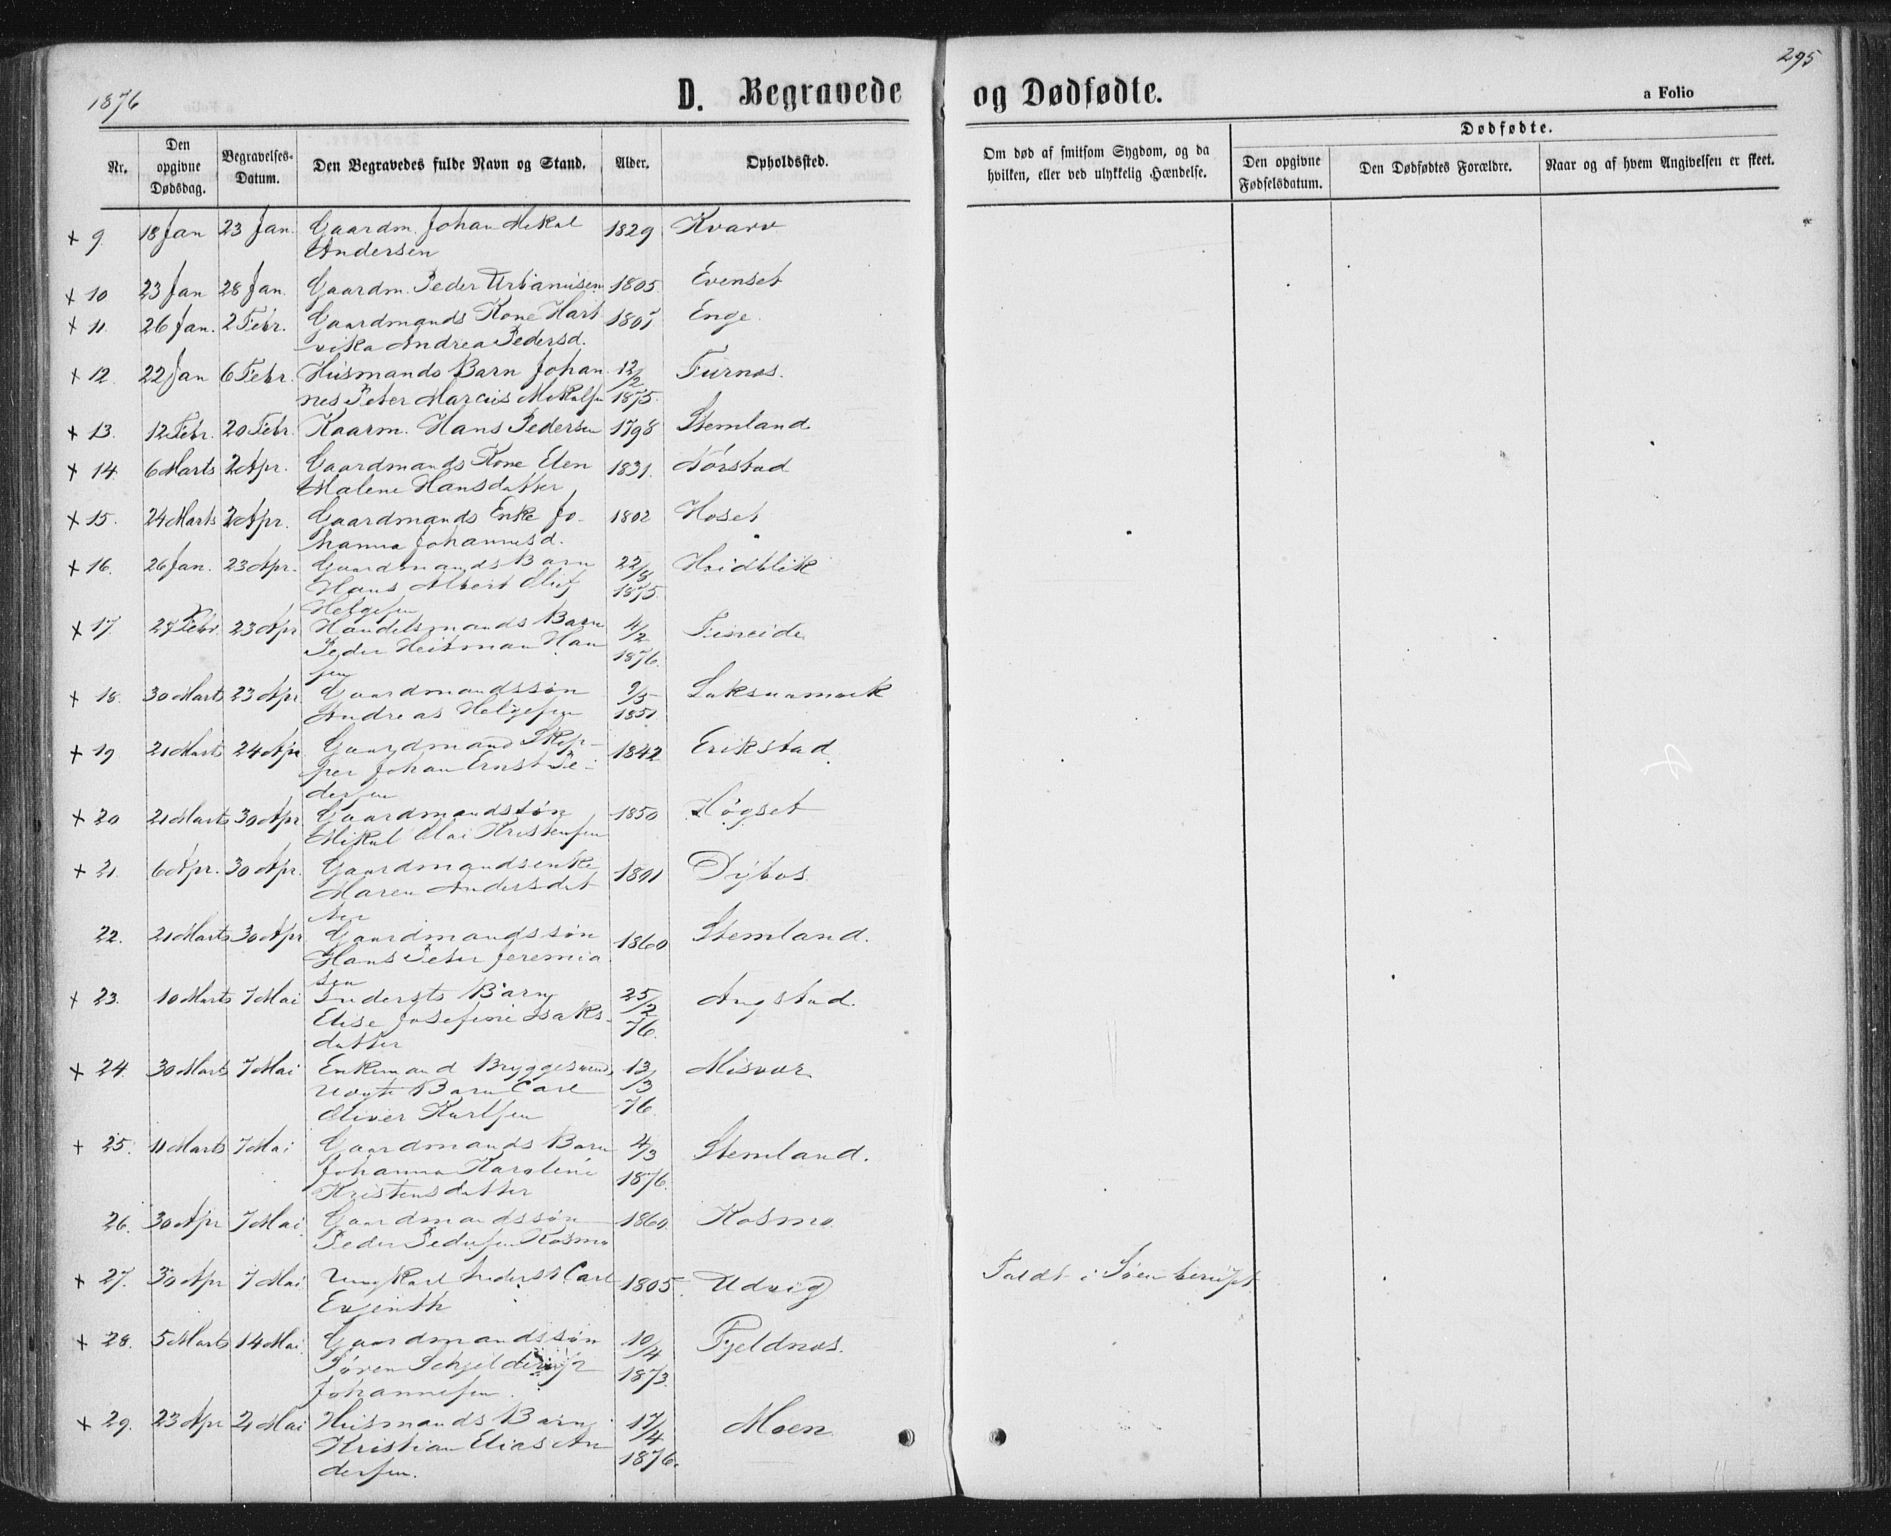 1876
D. Begravede og Dødfødte.
295
a Folio
Nr.
Den opgivne Dødsdag.
Begravelses-Datum.
Den Begravedes fulde Navn og Stand.
Alder.
Opholdssted.
Om død af smitsom Sygdom, og da hvilken, eller ved ulykkelig Hændelse.
Dødfødte.
Den opgivne Fødselsdatum.
Den Dødfødtes Forældre.
Naar og af hvem Angivelsen er skeet.
+ 9 18 Jan 23 Jan. Gaardm. Johan Mikal 1829 Kvarv
Andersen
+ 10 23 Jan 28 Jan. Gaardm. Peder Urbanusen 1805 Evenset
+ 11. 26 Jan. 2 Febr. Gaardmands Kone Hart Enge.
vika Andrea Pedersd.
+ 12. 22 Jan 6 Febr. Husmands Barn Johan 12/2 Furnes.
nes Peter Marcus Mikals 1875.
+ 13. 12 Febr. 20 Febr. Kaarm. Hans Pedersen 1798 Stemland
+ 14. 6 Marts 2 Apr. Gaardmands Kone Elen 1831. Nørstad
Malene Hansdatter
+ 15. 24 Marts 2 Apr. Gaardmands Enke Jo- 1802 Hoset
hanna Johannesd.
+ 16. 26 Jan. 23 Apr. Gaardmands Barn Hvidblik
Hans Albert Oluf 1875.
Helgesen
+ 17 Febr 23 Apr Handelsmands Barn 4/2
Peder Heitman Han 1876.
sen
+ 18. 30 Marts 23 Apr Gaardmandssøn 9/5
Andreas Helgesen 1851.
+ 19 21 Marts 24 Apr Gaardmand Skip- 1842 Erikstad
per Johan Ernst Pe-
dersen
+ 20 21 Marts 30 Apr Gaardmandssøn 1850 Høgset
Mikal Olai Kristensen
+ 21. 6 Apr. 30 Apr. Gaardmandsenke 1801
Maren Andersdat
ter
22. 21 Marts 30 Apr Gaardmandssøn 1860 Stemland.
Hans Peter Jeremia
sen
+ 23. 10 Marts 7 Mai Indersts Barn 25/2
Elise Josefine Isaks- 76.
datter
+ 24. 30 Marts 7 Mai Enkemand 13/3 Misvær
Barn Carl 76.
Oliver Karlsen
+ 25. 11 Marts 7 Mai Gaardmands Barn 4/3 Stemland.
Johanna Karoline 1876.
Kristensdatter
26. 30 Apr 7 Mai Gaardmandssøn 1860. Kosmo
Peder Pedersen Kosmo
+ 27. 30 Apr 7 Mai Ungkarl Inderst Carl 1805. Udvig Faldt i Søen
Evjenth
+ 28. 5 Marts 14 Mai Gaardmandssøn 10/4 Fjeldnes.
Søren Schjelderup 1873.
Johannesen.
+ 29. 23 Apr Mai Husmands Barn 17/4 Moen
Kristian Elias An 1876.
dersen.